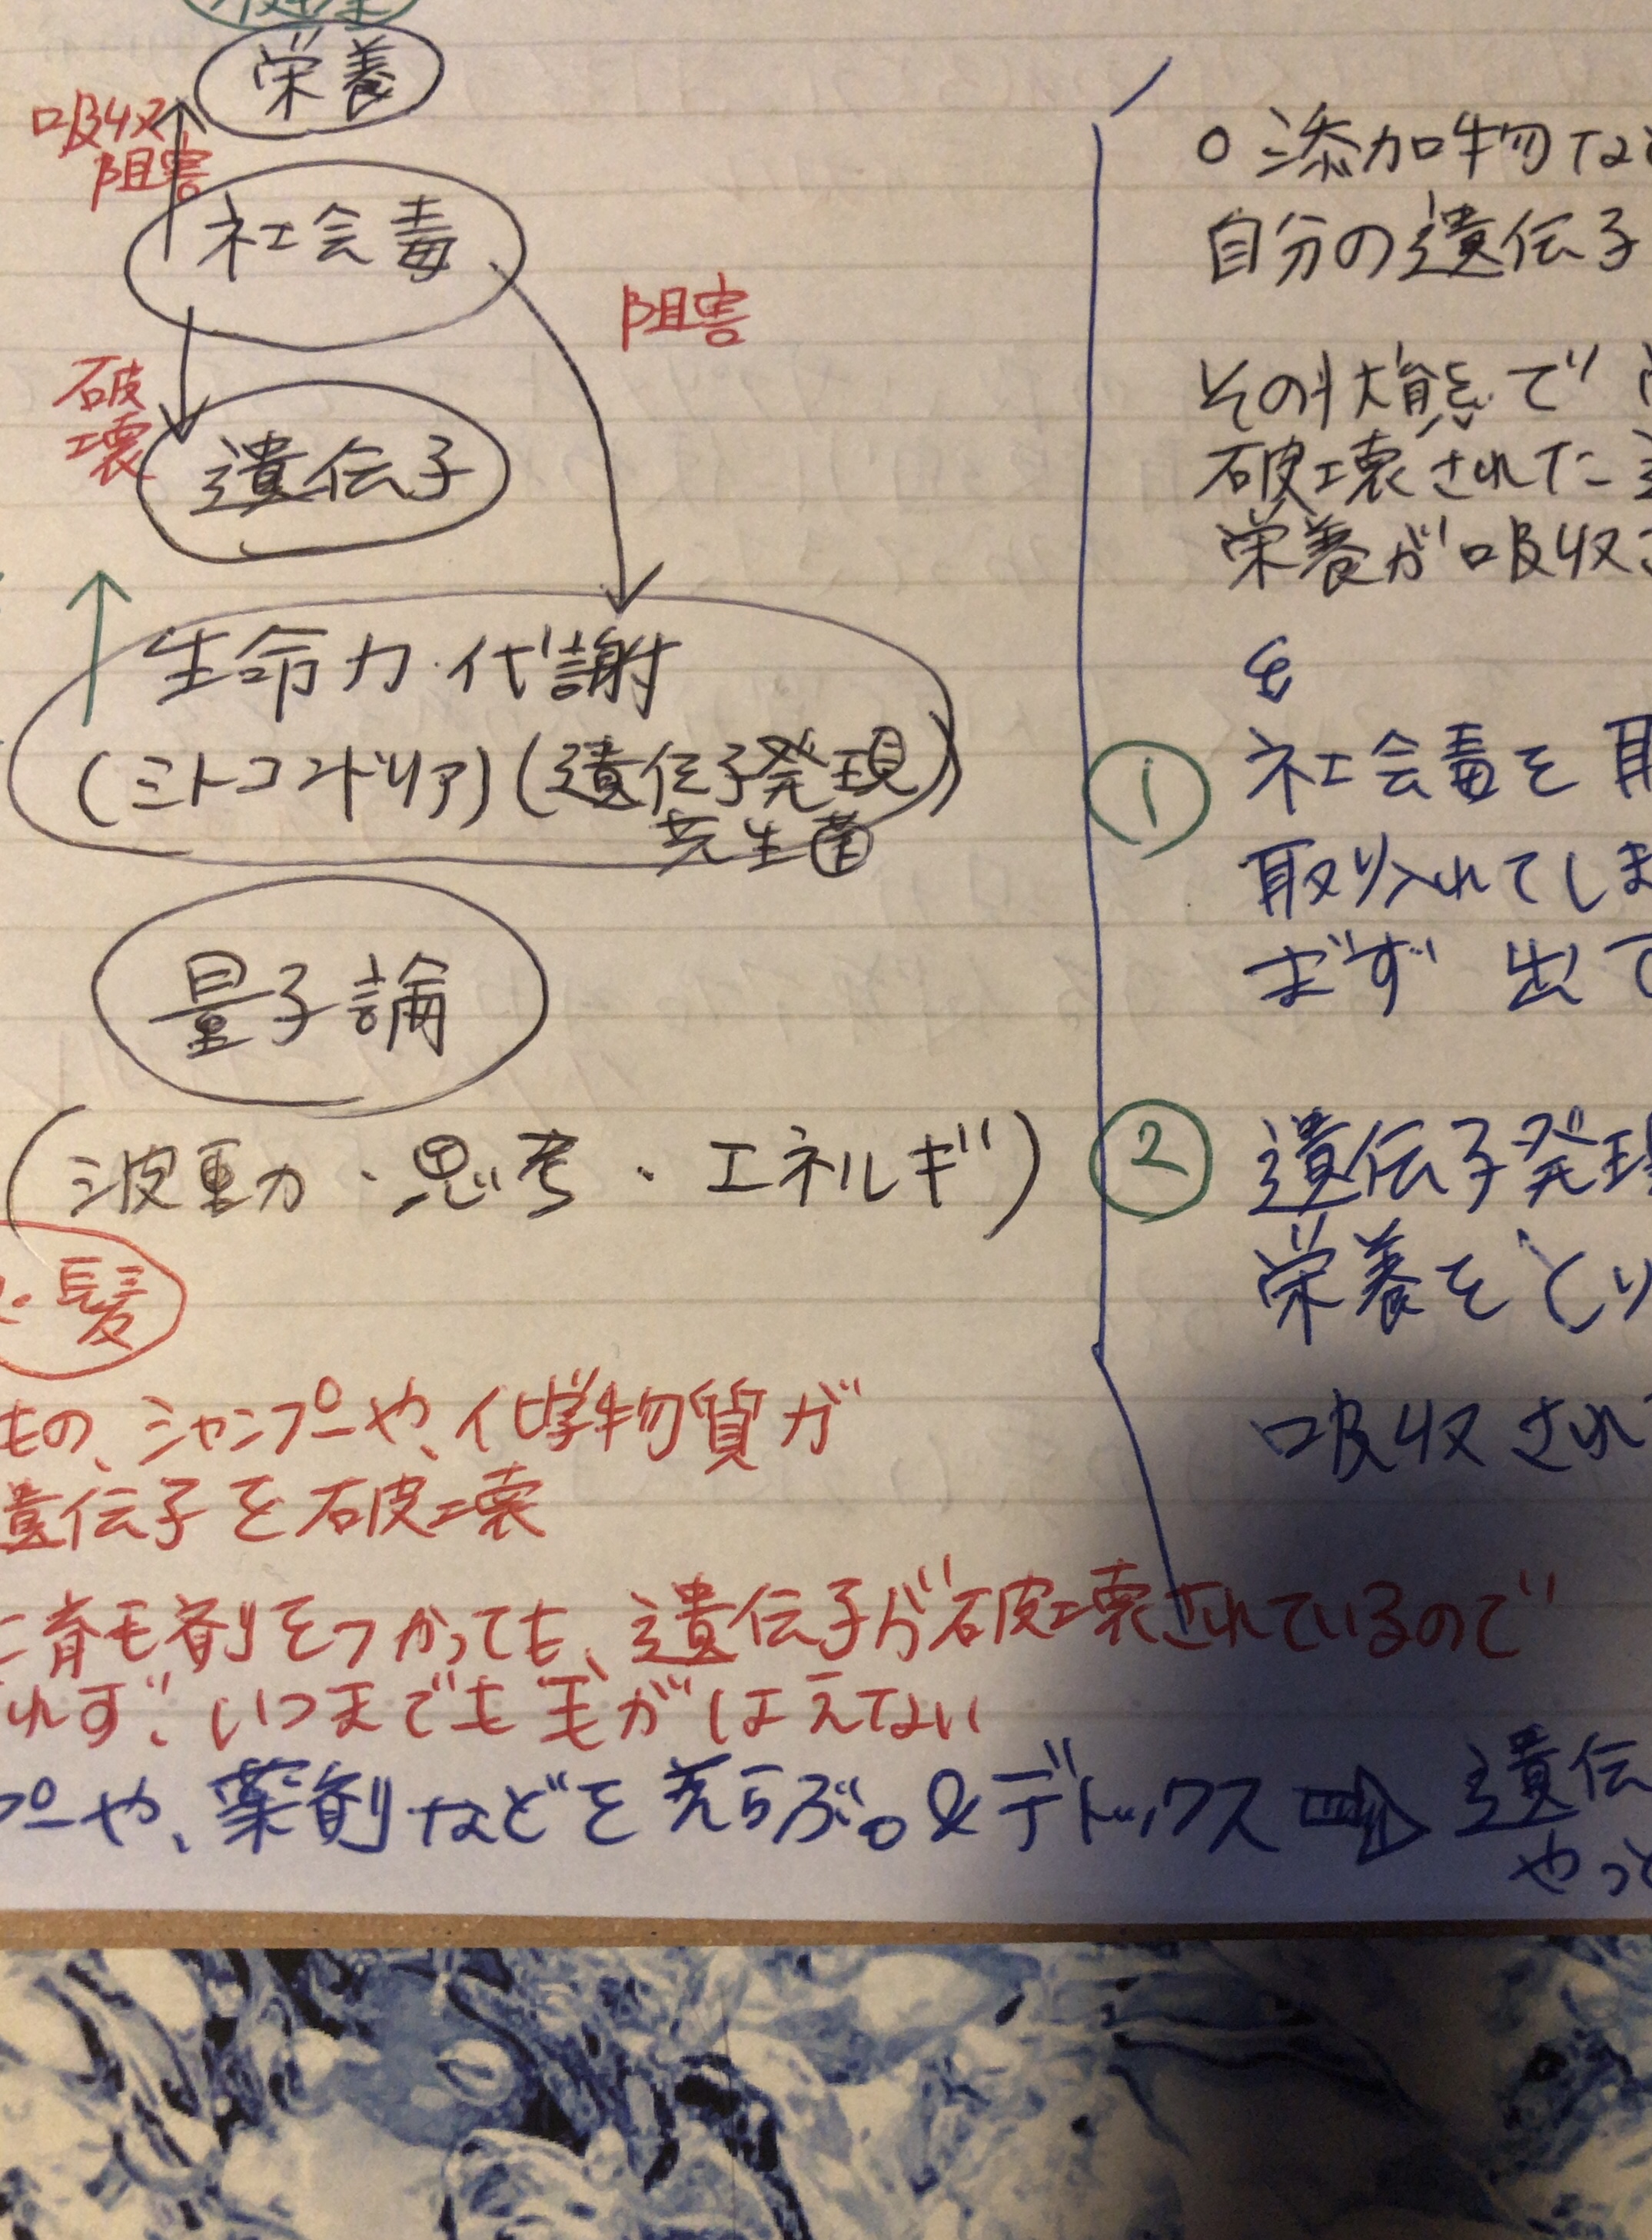 栄養
吸収
阻害
社会毒
阻害
破
壊
遺伝子
生命力・代謝
(ミトコンドリア)(遺伝子発現)
共生菌
量子論
(波動・思考・エネルギ)
髪
もの、シャンプーや、化学物質が
遺伝子を破壊
育毛剤をつかっても、遺伝子が破壊されているので
れず、いつまでも毛がはえてない
プーや、薬剤などをえらぶ。&デトックス ⇒ 遺伝
やっと
○添加物な
自分の遺伝子
その状態で
破壊された
栄養が吸収
を
① 社会毒を取
取り入れてしま
まず 出て
② 遺伝子発現
栄養をとり
吸収され